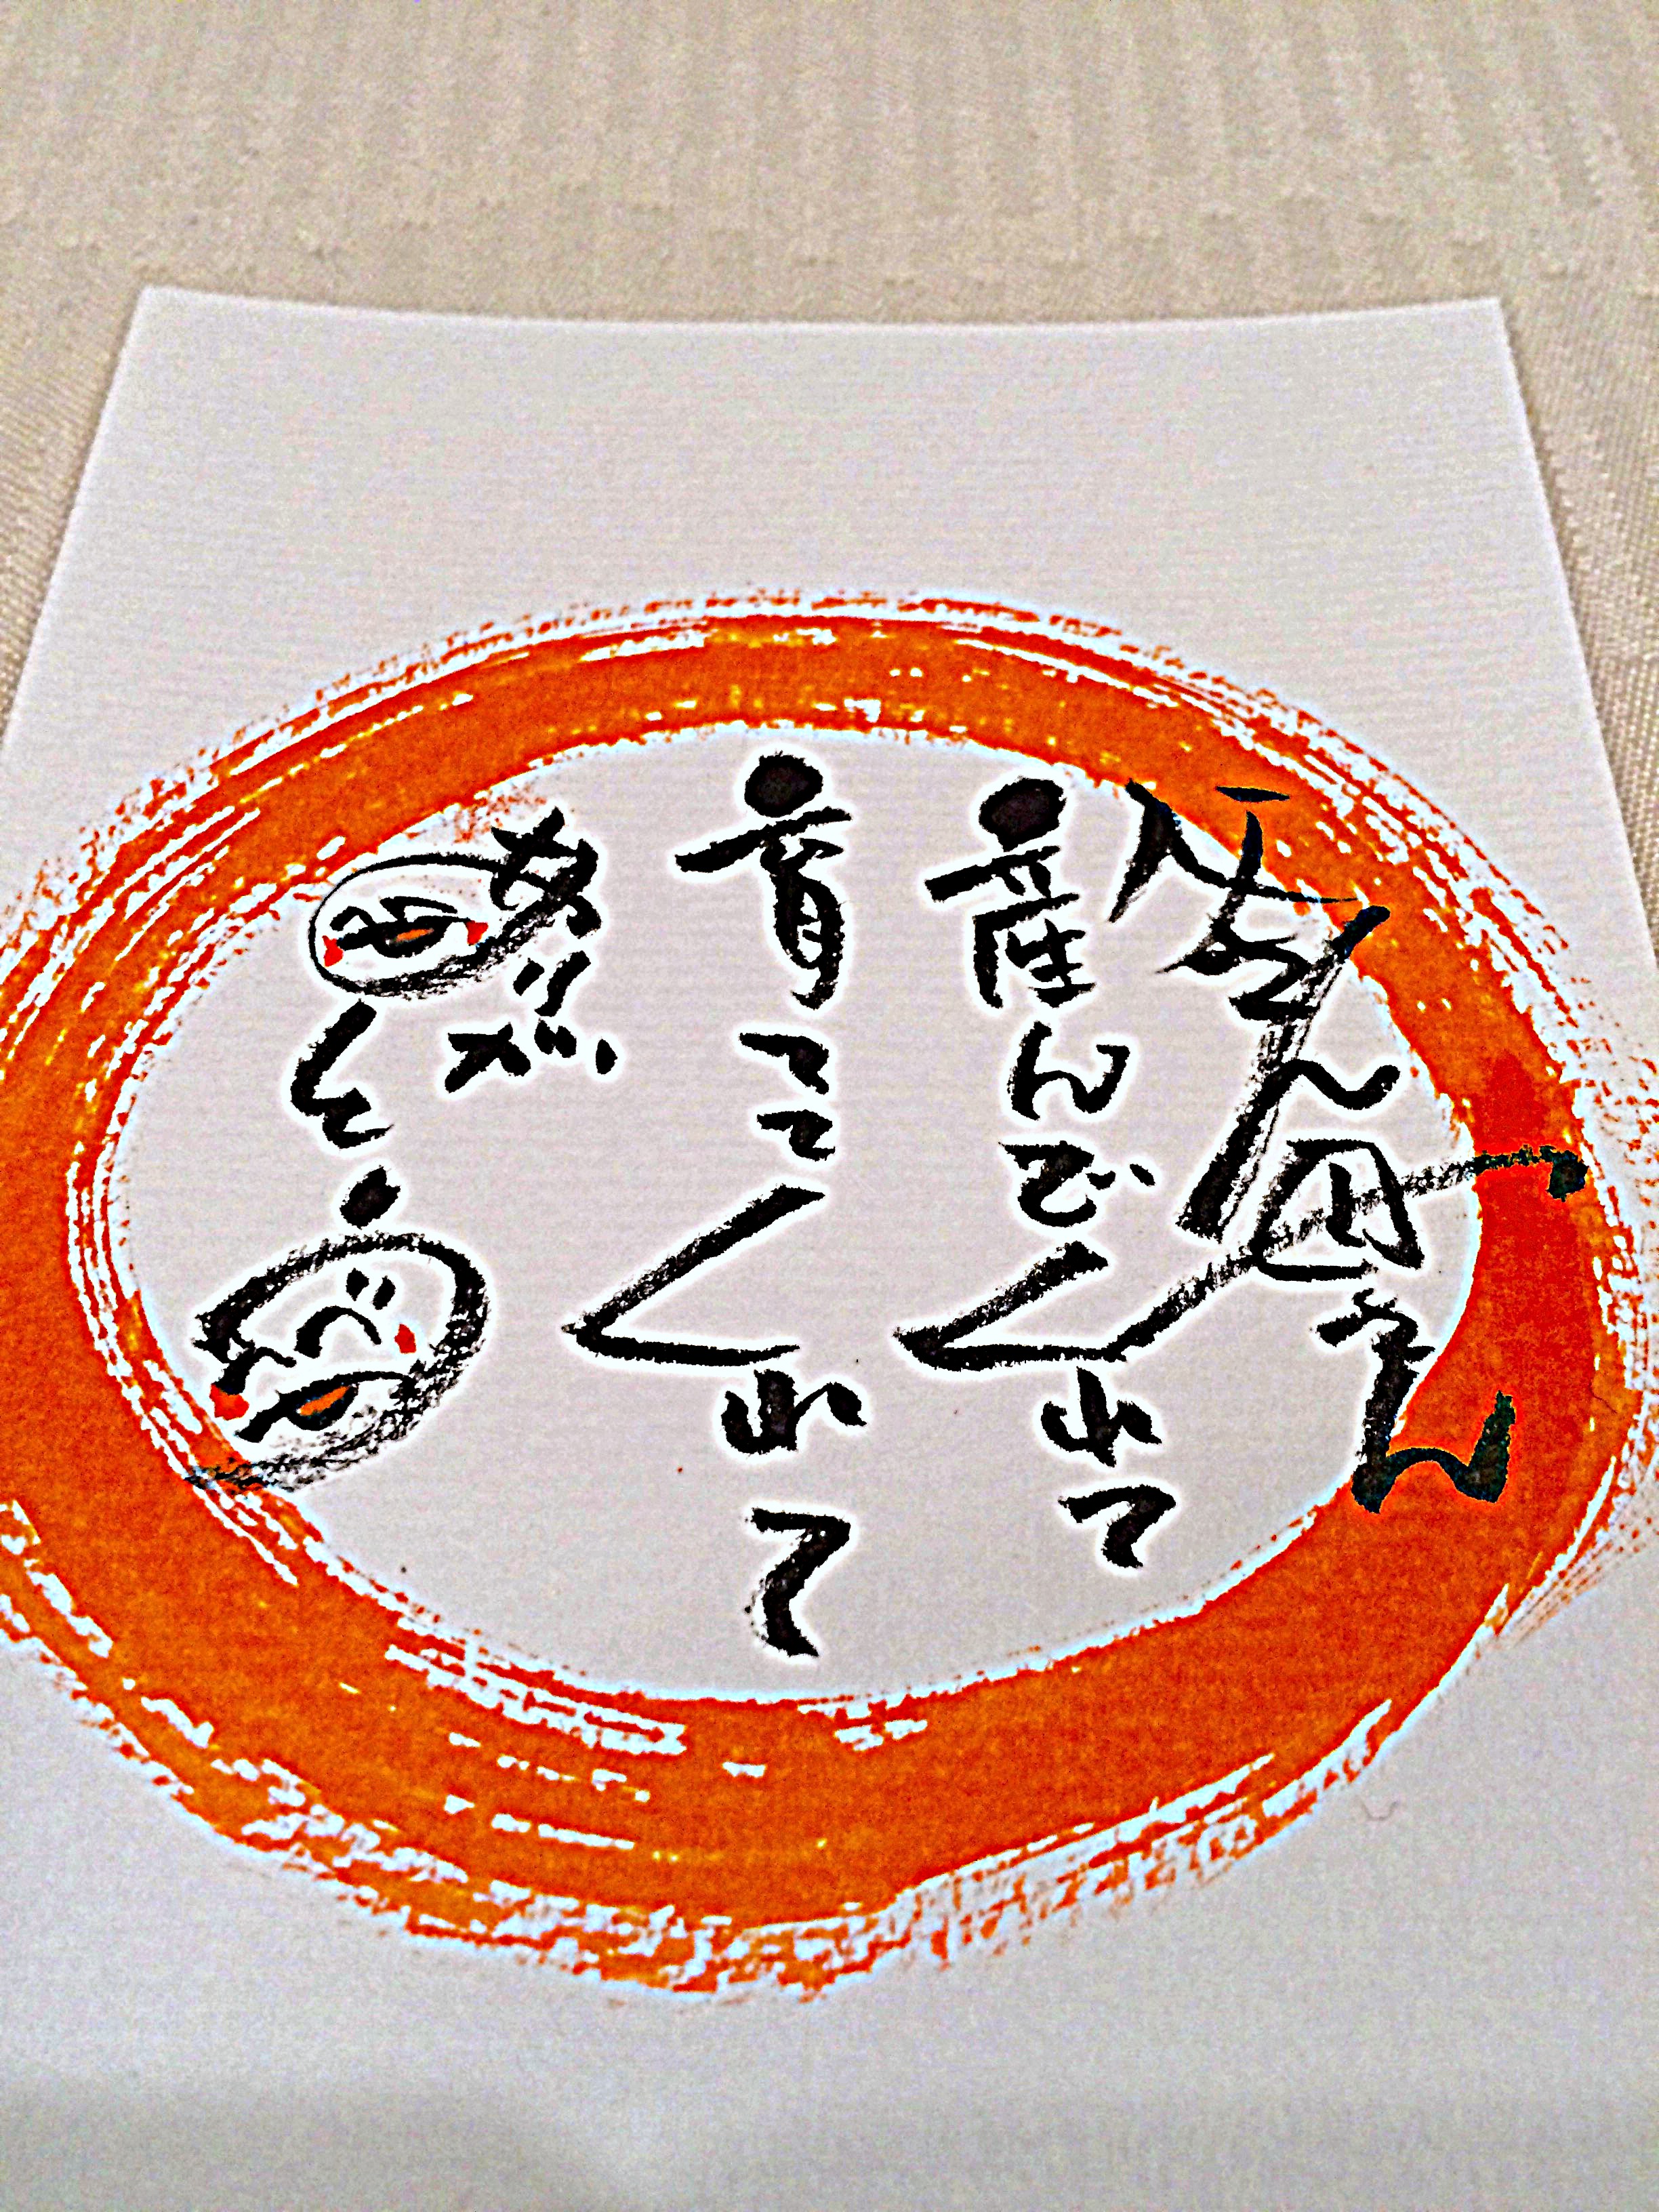 お母さん
産んでくれて
育ててくれて
ありがとう